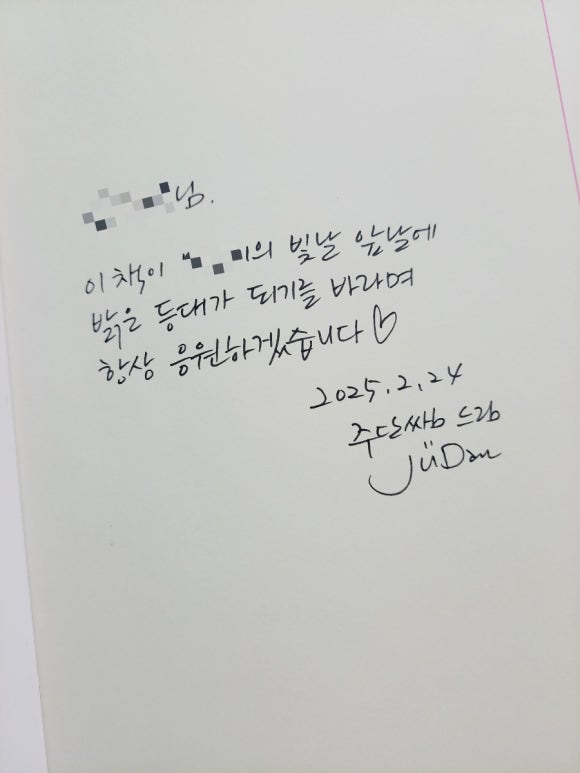 님.
이 책이 "의 빛날 앞날에
밝은 등대가 되기를 바라며
항상 응원하겠습니다♡
2025.2.24
주단쌤 드림
JüDan